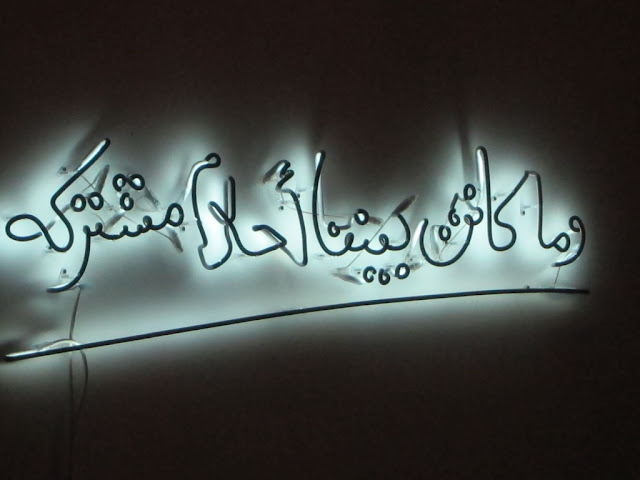 وما كانت بيننا أحلام مشتركه